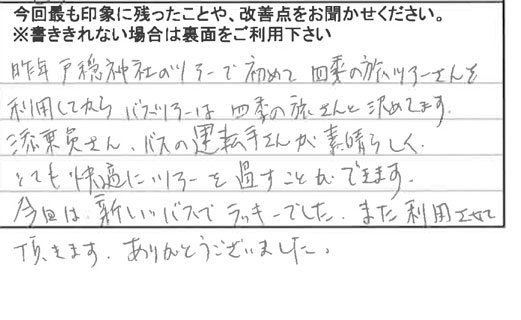 今回最も印象に残ったことや、改善点をお聞かせください。
※書ききれない場合は裏面をご利用下さい
昨年戸穏神社のツアーで初めて四季の旅ツアーさんを
利用してから バスツアーは 四季の旅さんと決めてます.
添乗員さん、バスの運転手さんが素晴らしく.
とても快適にツアーを過すことができます.
今回は新しいバスでラッキーでした. また利用させて
頂きます. ありがとうございました。